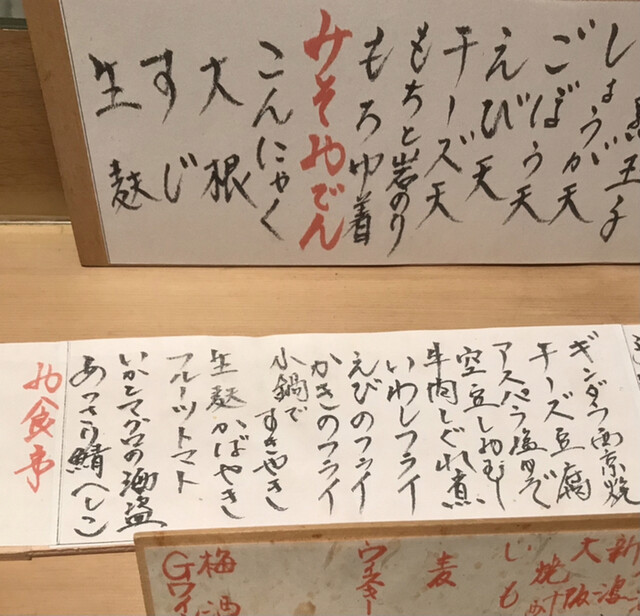 黒玉子
しょうが天
ごぼう天
えび天
チーズ天
もちと岩のり
もち巾着
みそおでん
こんにゃく
大根
すじ
生麩
ギンダラ西京焼
チーズ豆腐
アスパラ塩ゆで
空豆しおむし
牛肉しぐれ煮
いわしフライ
えびのフライ
かきのフライ
小鍋で
すきやき
生麩かばやき
フルーツトマト
いかとマグロの酒盗
あっさり鯖へしこ
お食事
新
大阪
焼酎
いも
麦
ウイスキー
梅酒
Gワイ